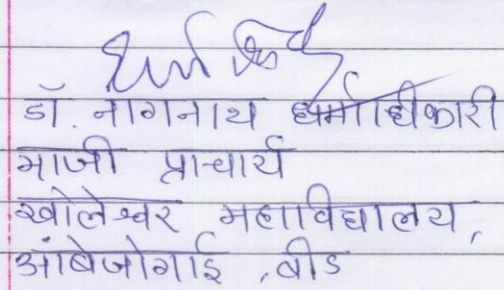 डॉ. नागनाथ धर्माधिकारी
माजी प्राचार्य
खोलेश्वर महाविद्यालय,
आंबेजोगाई ,बीड